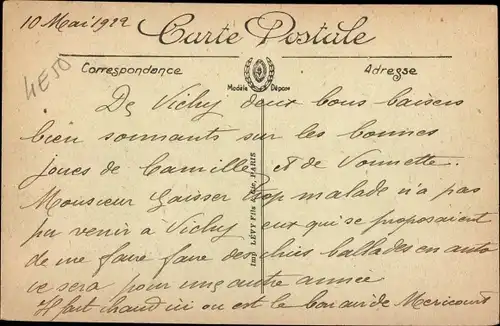 10 Mai 1922
Carte Postale
Correspondance
Adresse
Modèle Déposé
4E50
De Vichy deux bons baisers
bien sonnants sur les bonnes
joues de Camille et de Vonnette.
Monsieur Gaisser trop malade n'a pas
pu venir à Vichy eux qui se proposaient
de me faire faire des ballades en auto
ce sera pour une autre année
Il fait chaud ici ou est le bon air de Mericourt
Imp. LÉVY Fils & Cie, PARIS